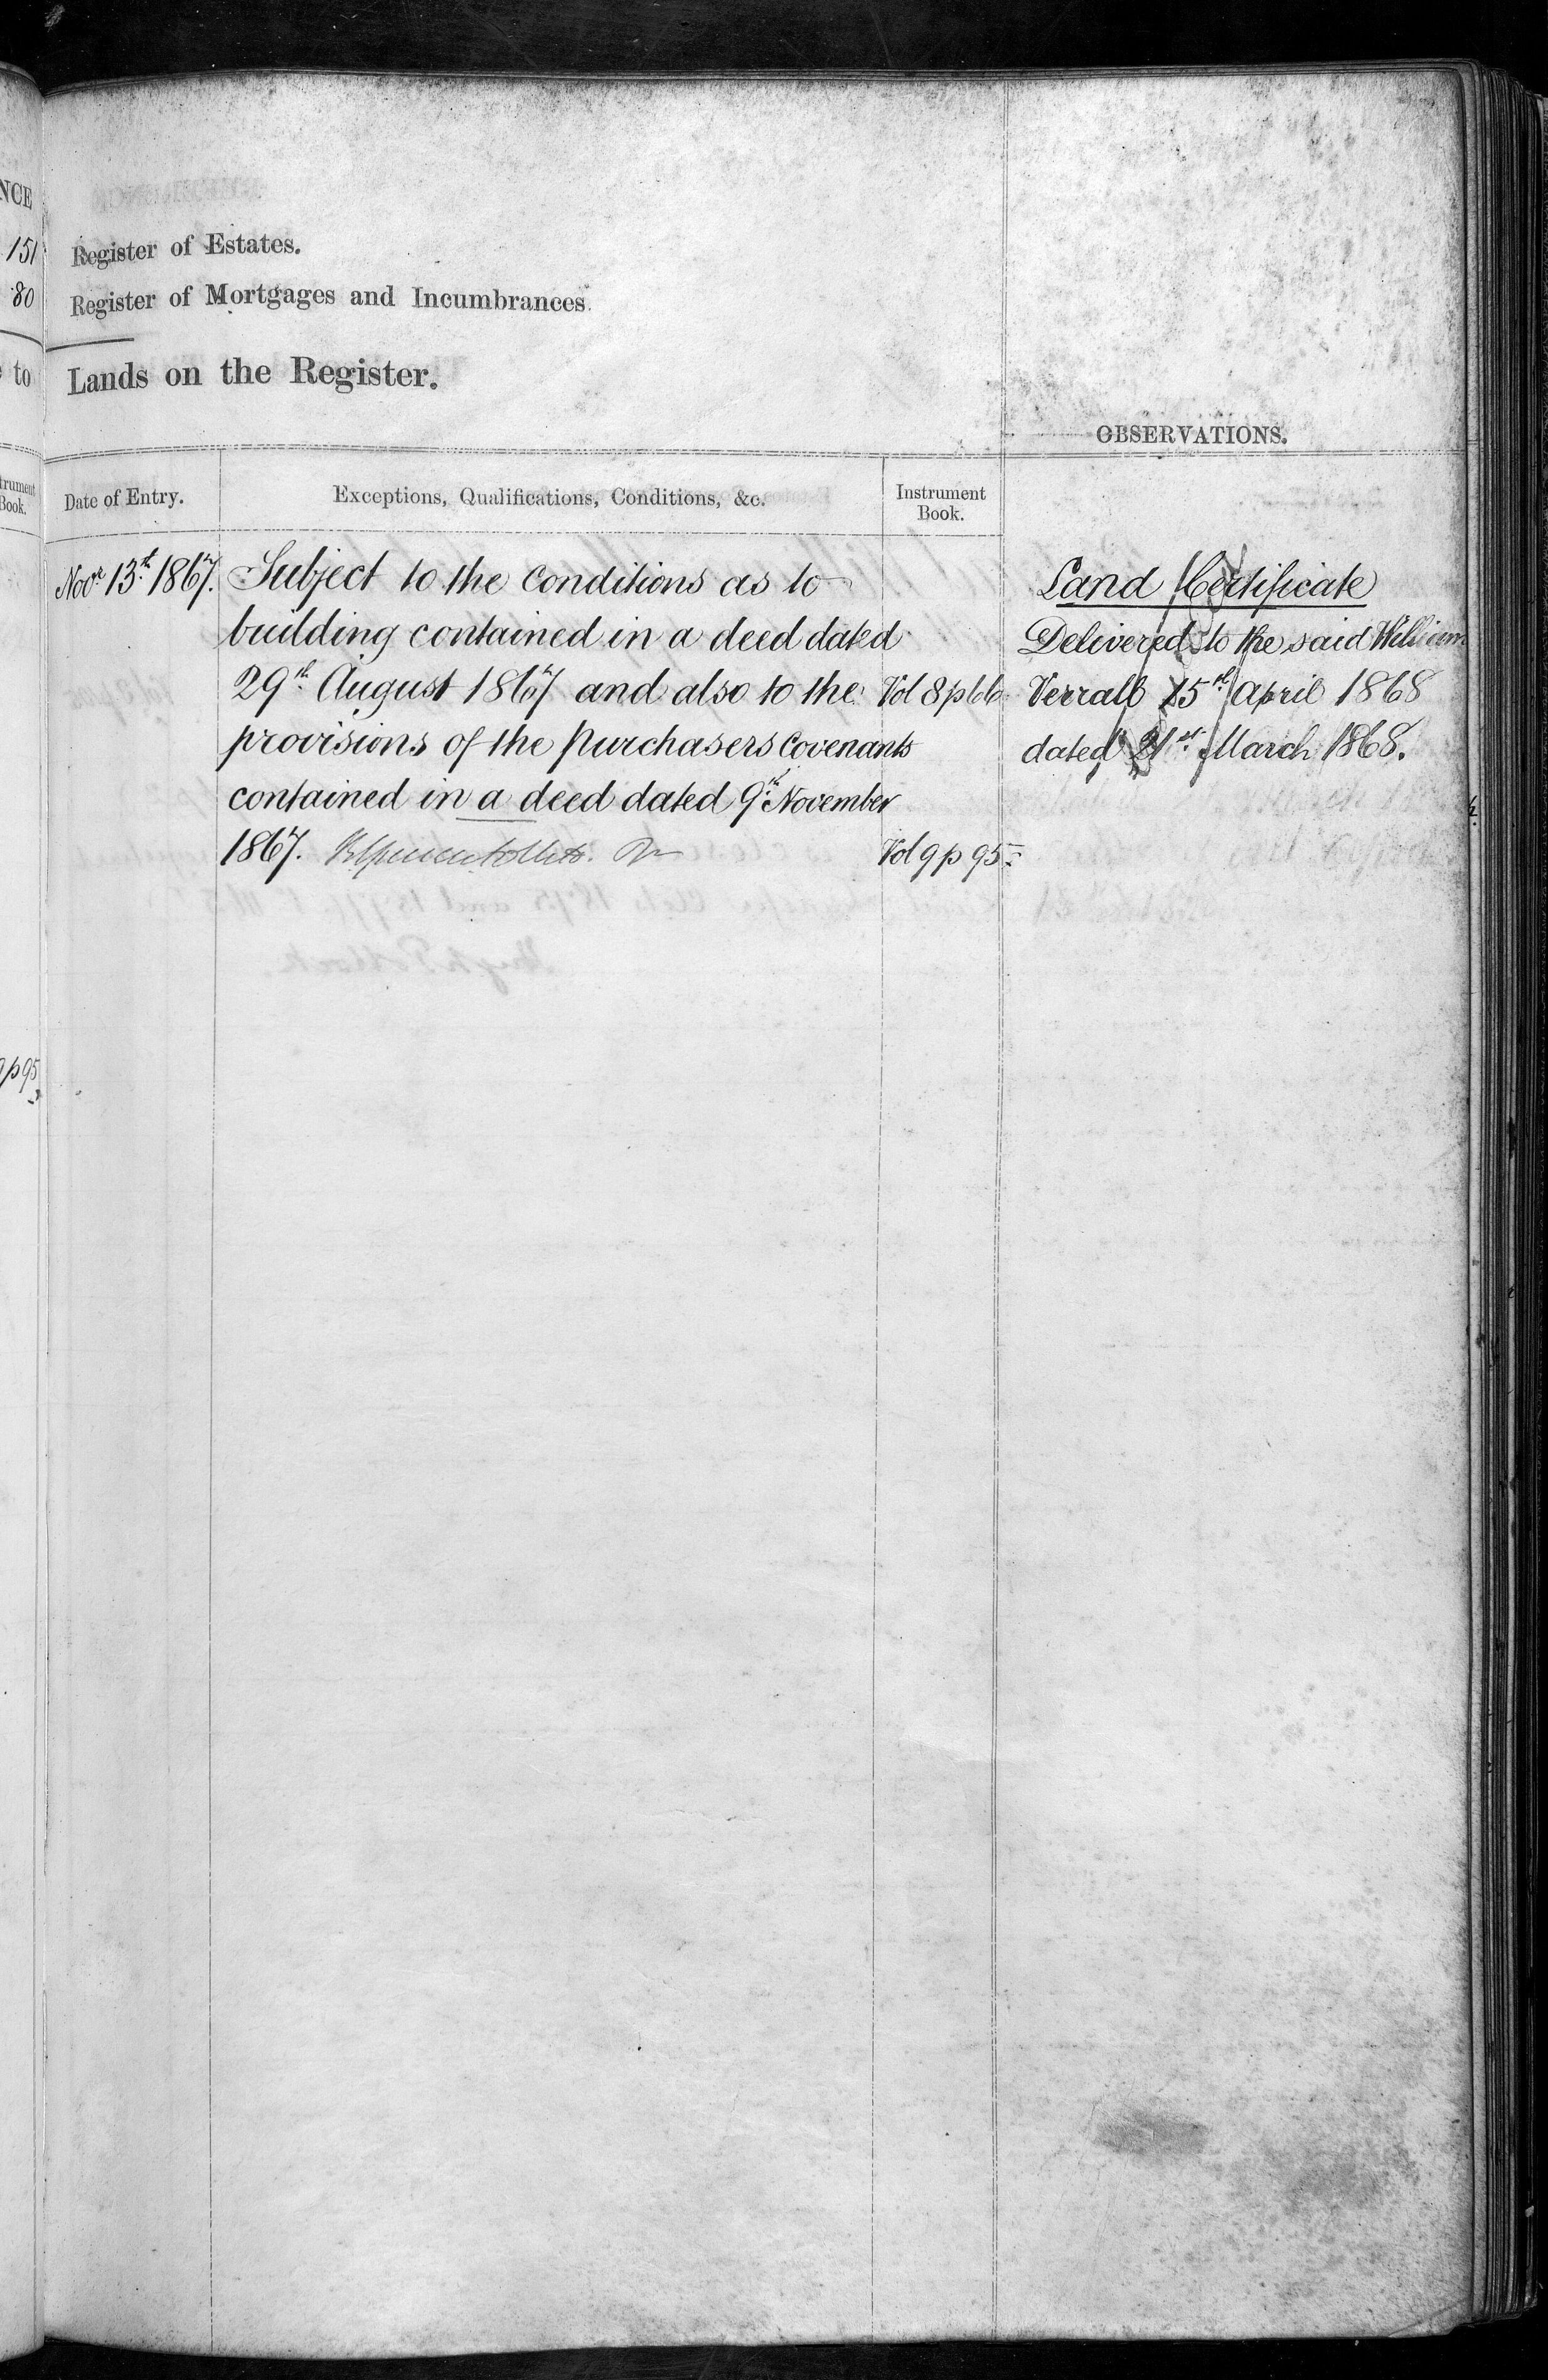 NCE
151
80
to
trument
Book.
p 95
Register of Estates.
Register of Mortgages and Incumbrances.
Lands on the Register.
OBSERVATIONS.
Date of Entry.
Exceptions, Qualifications, Conditions, &c.
Instrument
Book.
Novr 13th 1867.
Subject to the conditions as to
building contained in a deed dated
29th August 1867 and also to the
Vol 8 p 66
provisions of the purchasers covenants
contained in a deed dated 9th November
1867.
Vol 9 p 95
Land Certificate
Delivered to the said William
Verrall 15th April 1868
dated 21st March 1868.